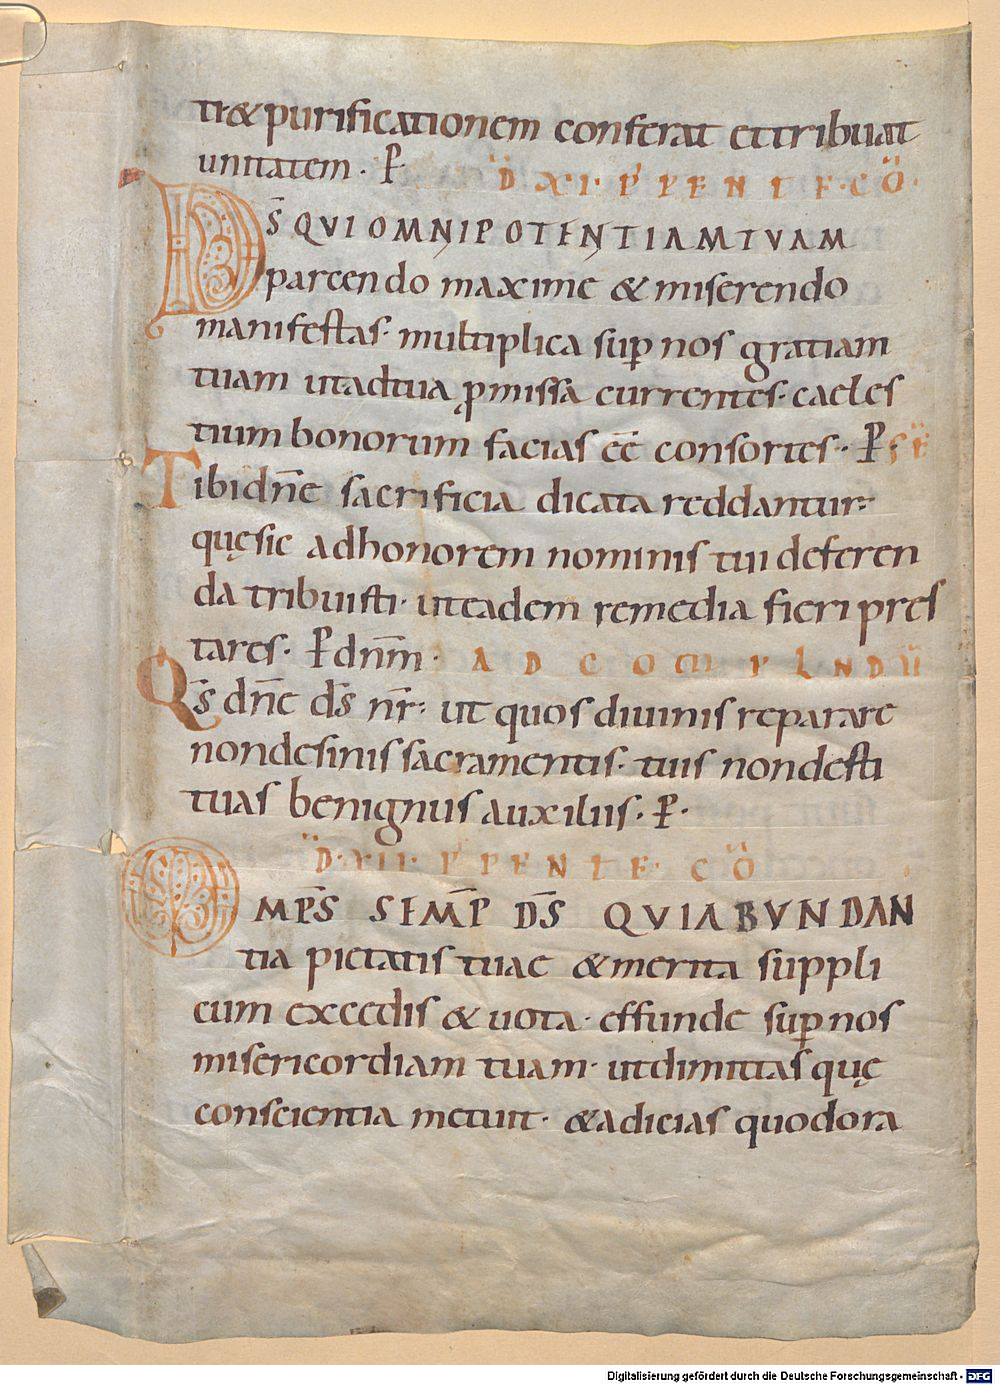 tr& purificationem conferat et tribuat
unitatem · P̄
D̄ XI · P̄ PENTE·CŌ·
DS̄ QVI OMNIPOTENTIAM TVAM
parcendo maxime & miserendo
manifestas· multiplica sup̱ nos gratiam
tuam ut ad tua p̱missa currentes· caeles
tium bonorum facias eē consortes· P̄ SE
Tibi dn̄e sacrificia dicata reddantur·
quę sic ad honorem nominis tui deferen
da tribuisti· ut eadem remedia fieri pres
tares· P̄ dnm̄·
AD COMPLNDŪ
Qs̄ dn̄e ds̄ nr̄· ut quos diuinis reparare
non desinis sacramentis· tuis non desti
tuas benignus auxiliis· P̄·
D̄·XII· P̄ PENTE· CŌ
OMPS̄ SEMP̄ DS̄ QVI ABVNDAN
tia pietatis tuae & merita suppli
cum excedis & uota· effunde sup̱ nos
misericordiam tuam· ut dimittas quę
conscientia metuit· & adicias quod ora
Digitalisierung gefördert durch die Deutsche Forschungsgemeinschaft - DFG